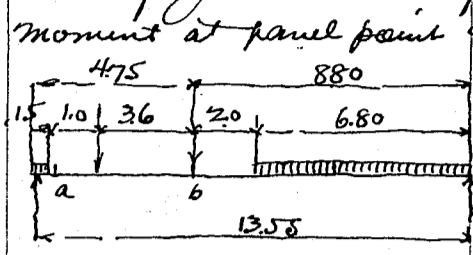 moment at panel point
4.75 880
.15 1.0 3.6 2.0 6.80
a b
13.55